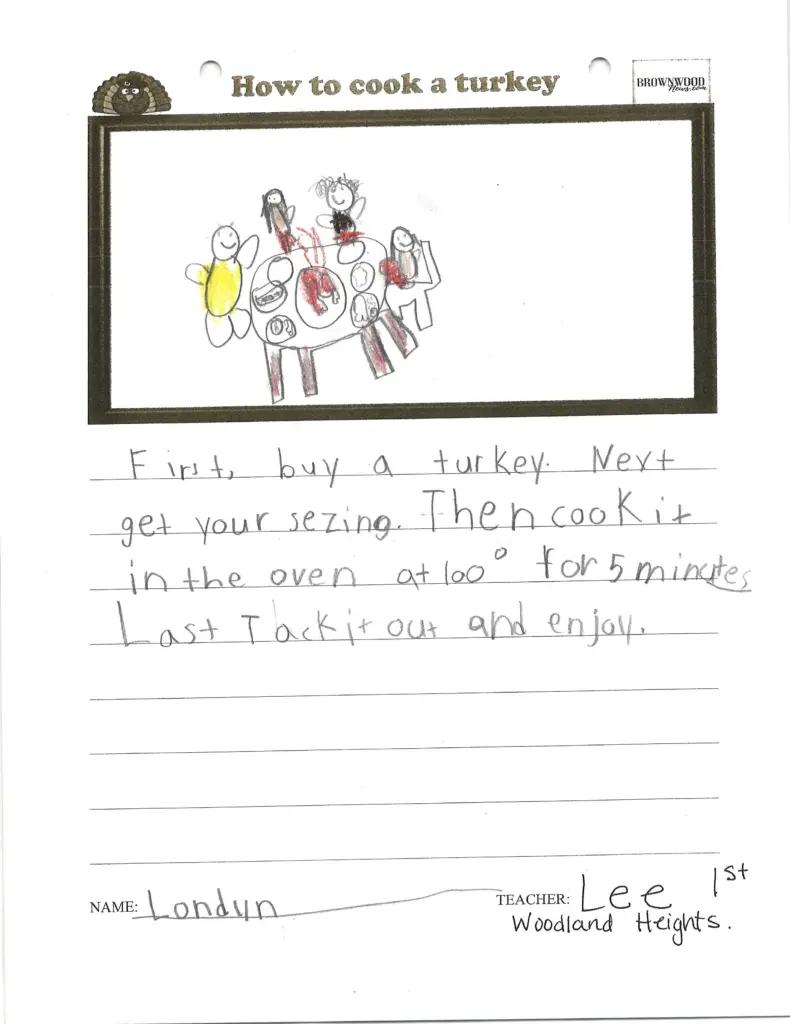 How to cook a turkey
BROWNWOOD
News.com
First, buy a turkey. Next
get your sezing. Then cook it
in the oven at 100° for 5 minutes
Last Tack it out and enjoy.
NAME: Londyn
TEACHER: Lee 1st
Woodland Heights.